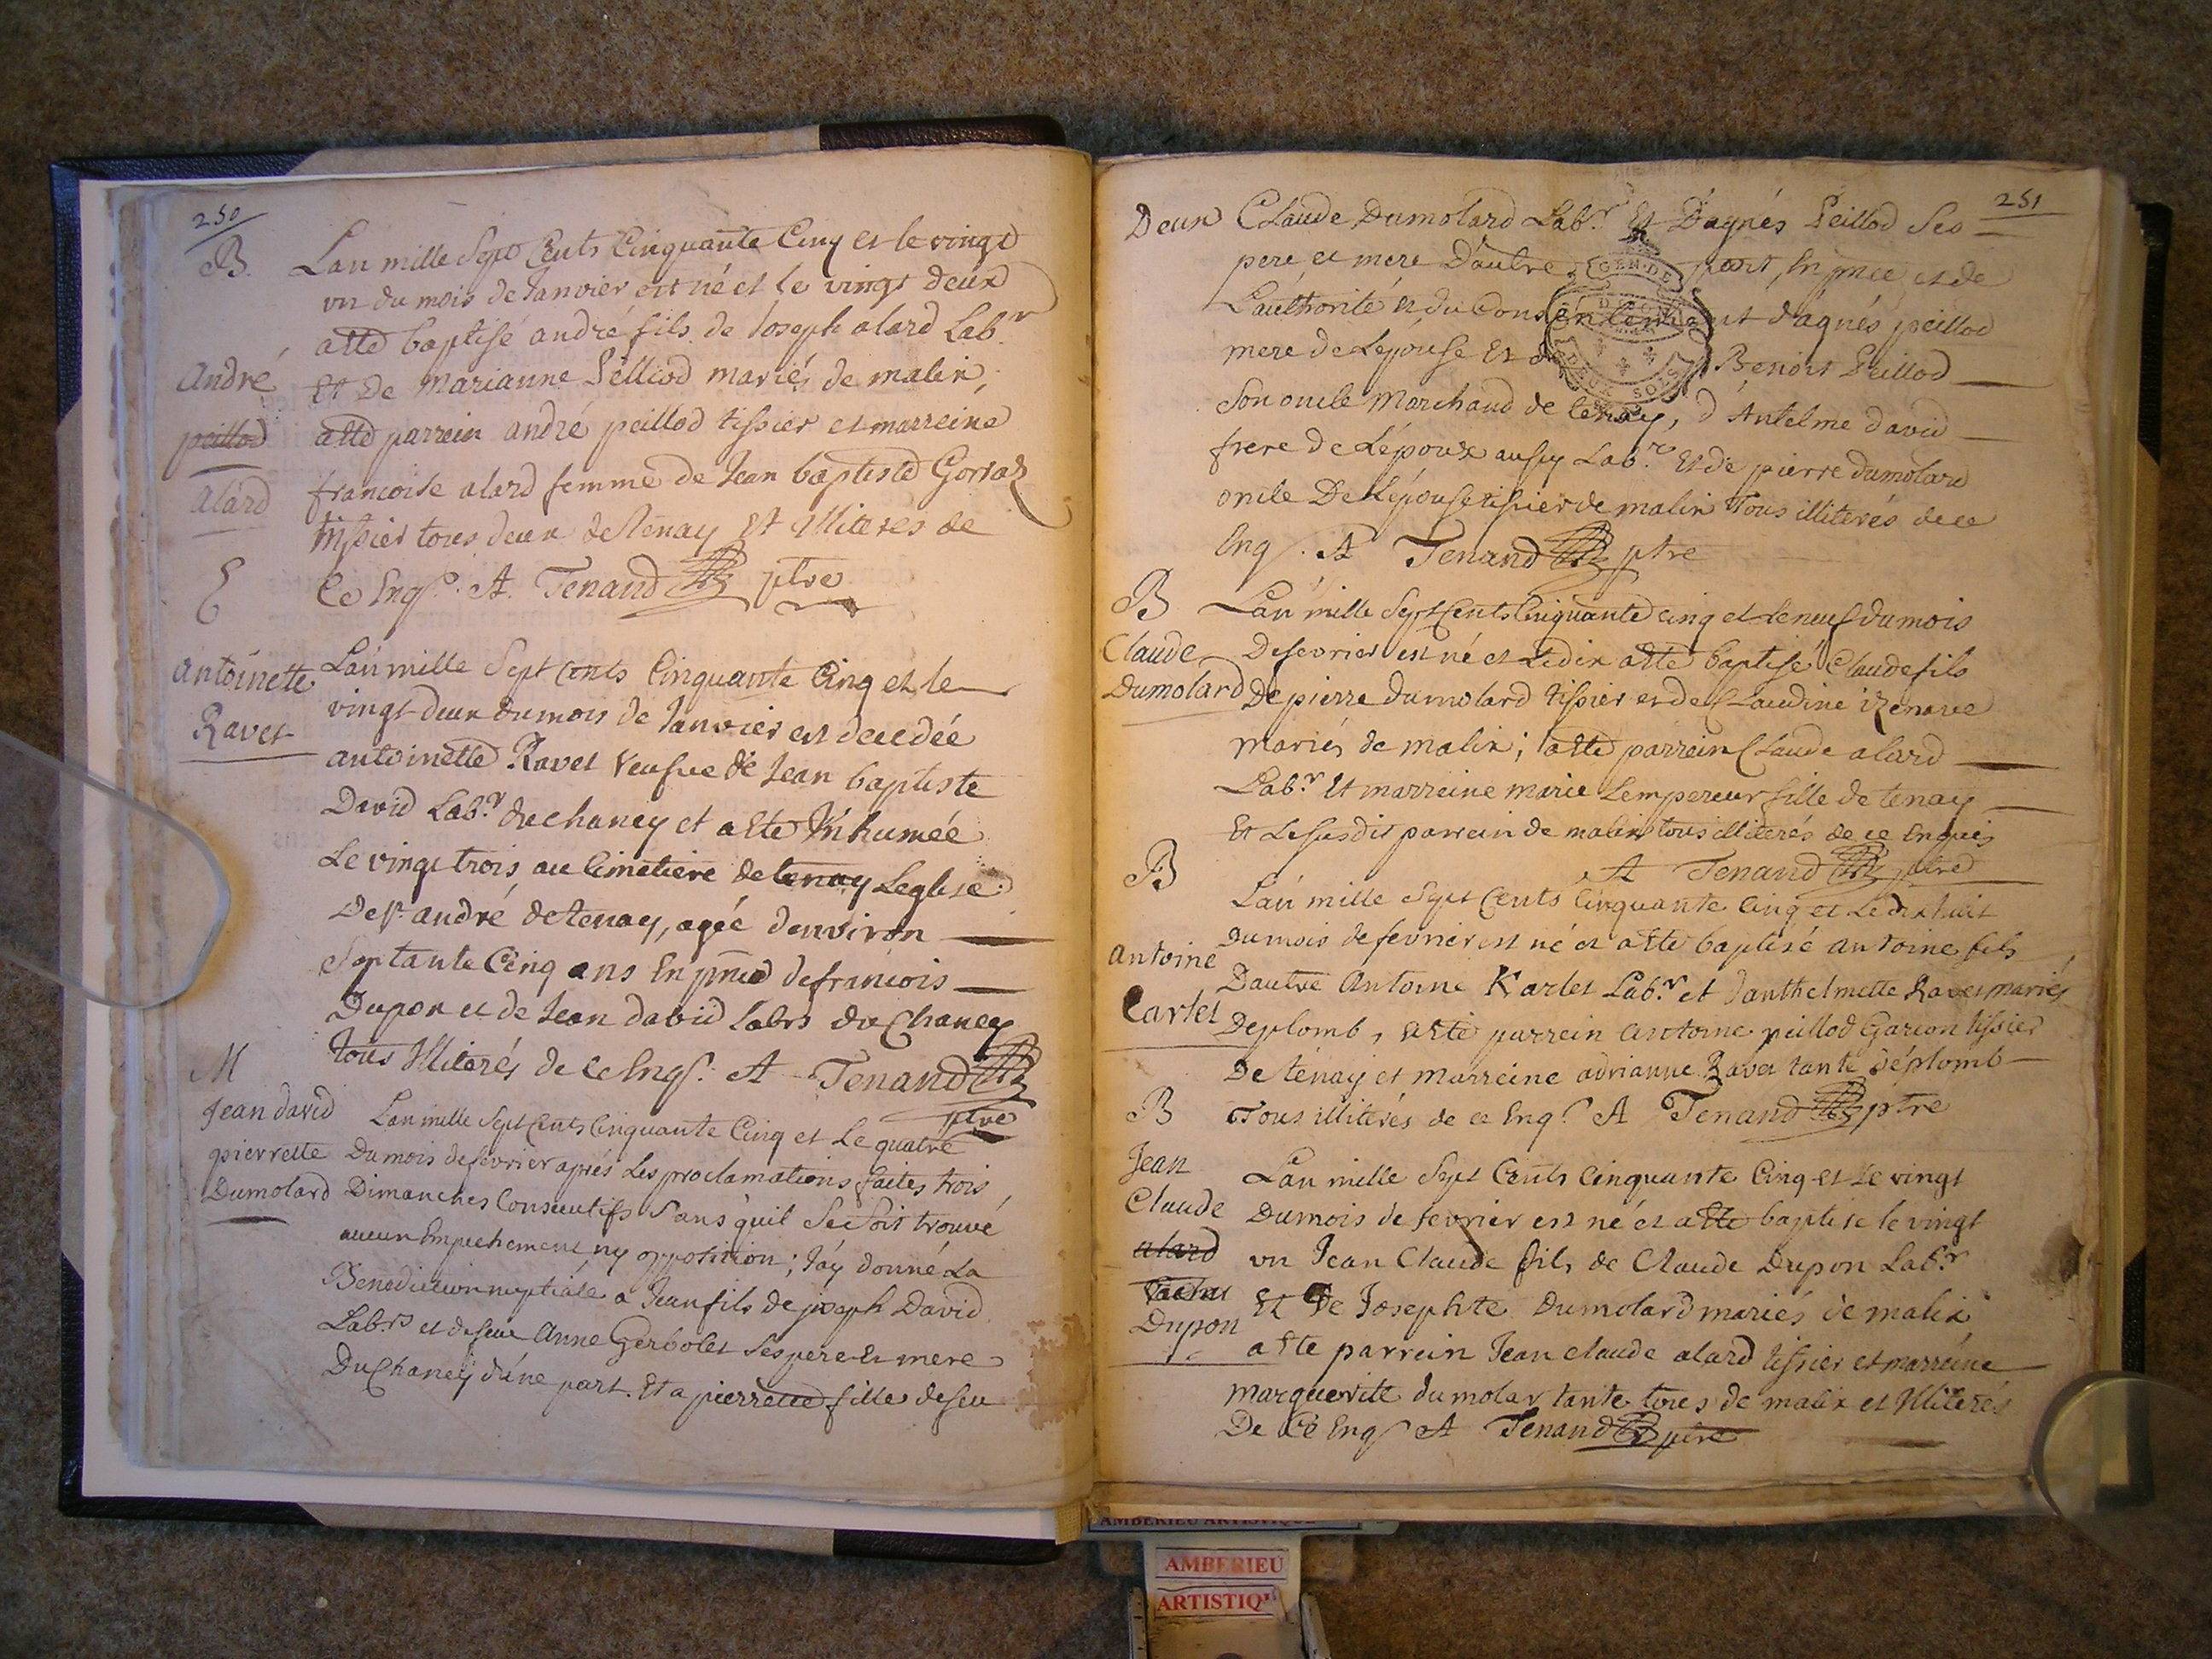 250
B.
Lan mille Sept Cents Cinquante Cinq et le vingt
vn du mois de Janvier est né et le vingt deux
atté baptisé andré fils de Joseph alard Labr
André
Et De Marianne Pelliod mariés de malix,
peillod
atté parrein andré peillod tissier et marreine
alard
francoise alard femme de Jean baptiste Gorraz
tissier tous deux de Tenay Et Illiteres de
E
Ce Enqs. A. Tenand ptre
Antoinette
Ravet
Lan mille Sept Cents Cinquante Cinq et le
vingt-deux du mois de Janvier est decedée
antoinette Ravet veufue de Jean baptiste
David Labr de chaney et atté Inhumée
Le vingt trois au Cimetiere de tenay Leglise
De st andré de tenay, agée denviron
Septante Cinq ans En pnce de francois
Dupon et de Jean david Labrs du Chaney
tous Illiterés de ce Enqs. A Tenand
ptre
M
Jean david
pierrette
Dumolard
Lan mille Sept Cents Cinquante Cinq et Le quatre
Du mois de fevrier aprés Les proclamations faites trois
Dimanches Consecutifs Sans quil Se Soit trouvé
aucun Empechement ny opposition; Jáy donné La
Benediction nuptiale a Jean fils de joseph David
Labrs et de feue Anne Gerbolet Ses pere et mere
Du Chaney dúne part. Et a pierrette fille de feu
251
Deux Claude Dumolard Labr. Et Dagnés Peillod Ses
pere et mere D'autre part, En pnce et de
Lauthorité et du Consentement dágnés peillod
mere de Lépouse Et de Benoit Peillod
Son oncle Marchand de tenay, d'Antelme david
frere de Lépoux aussy Labr. Et de pierre dumolard
oncle De Lépouse tissier de malix Tous illiterés de ce
Enqs. A Tenand ptre
GEN. DE
DEUX SOLS
B
Claude
Dumolard
Lan mille Sept Cents Cinquante cinq et le neuf du mois
De fevrier est né et Le dix atté baptisé Claude fils
De pierre dumolard tissier et de Claudine
mariés de malix; atté parrein Claude alard
Labr. Et marreine marie Lempereur fille de tenay
Et Le susdit parrein de malix tous illiterés de ce Enquis
A Tenand ptre
B
Antoine
Cartet
Lan mille Sept Cents Cinquante Cinq et Le dix huit
Du mois de fevrier est né et atté baptisé antoine fils
Dautre Antoine Kartet Labr. et Danthelmette Ravet mariés
De plomb, atté parrein antoine peillod Garcon tissier
De ténay et marreine adrianne Ravet tante dé plomb
Tous illiterés de ce Enqs A Tenand ptre
B
Jean
Claude
alard
Dupon
Lan mille Sept Cents Cinquante Cinq et Le vingt
Du mois de fevrier est né et atté baptise le vingt
vn Jean Claude fils de Claude Dupon Labr.
Et De Josephte Dumolard mariés de malix
atté parrein Jean claude alard tissier et marreine
marguerite dumolar tante tous de malix et Illiterés
De Ce Enqs A Tenand ptre
AMBERIEU ARTISTIQUE
AMBERIEU
ARTISTIQU